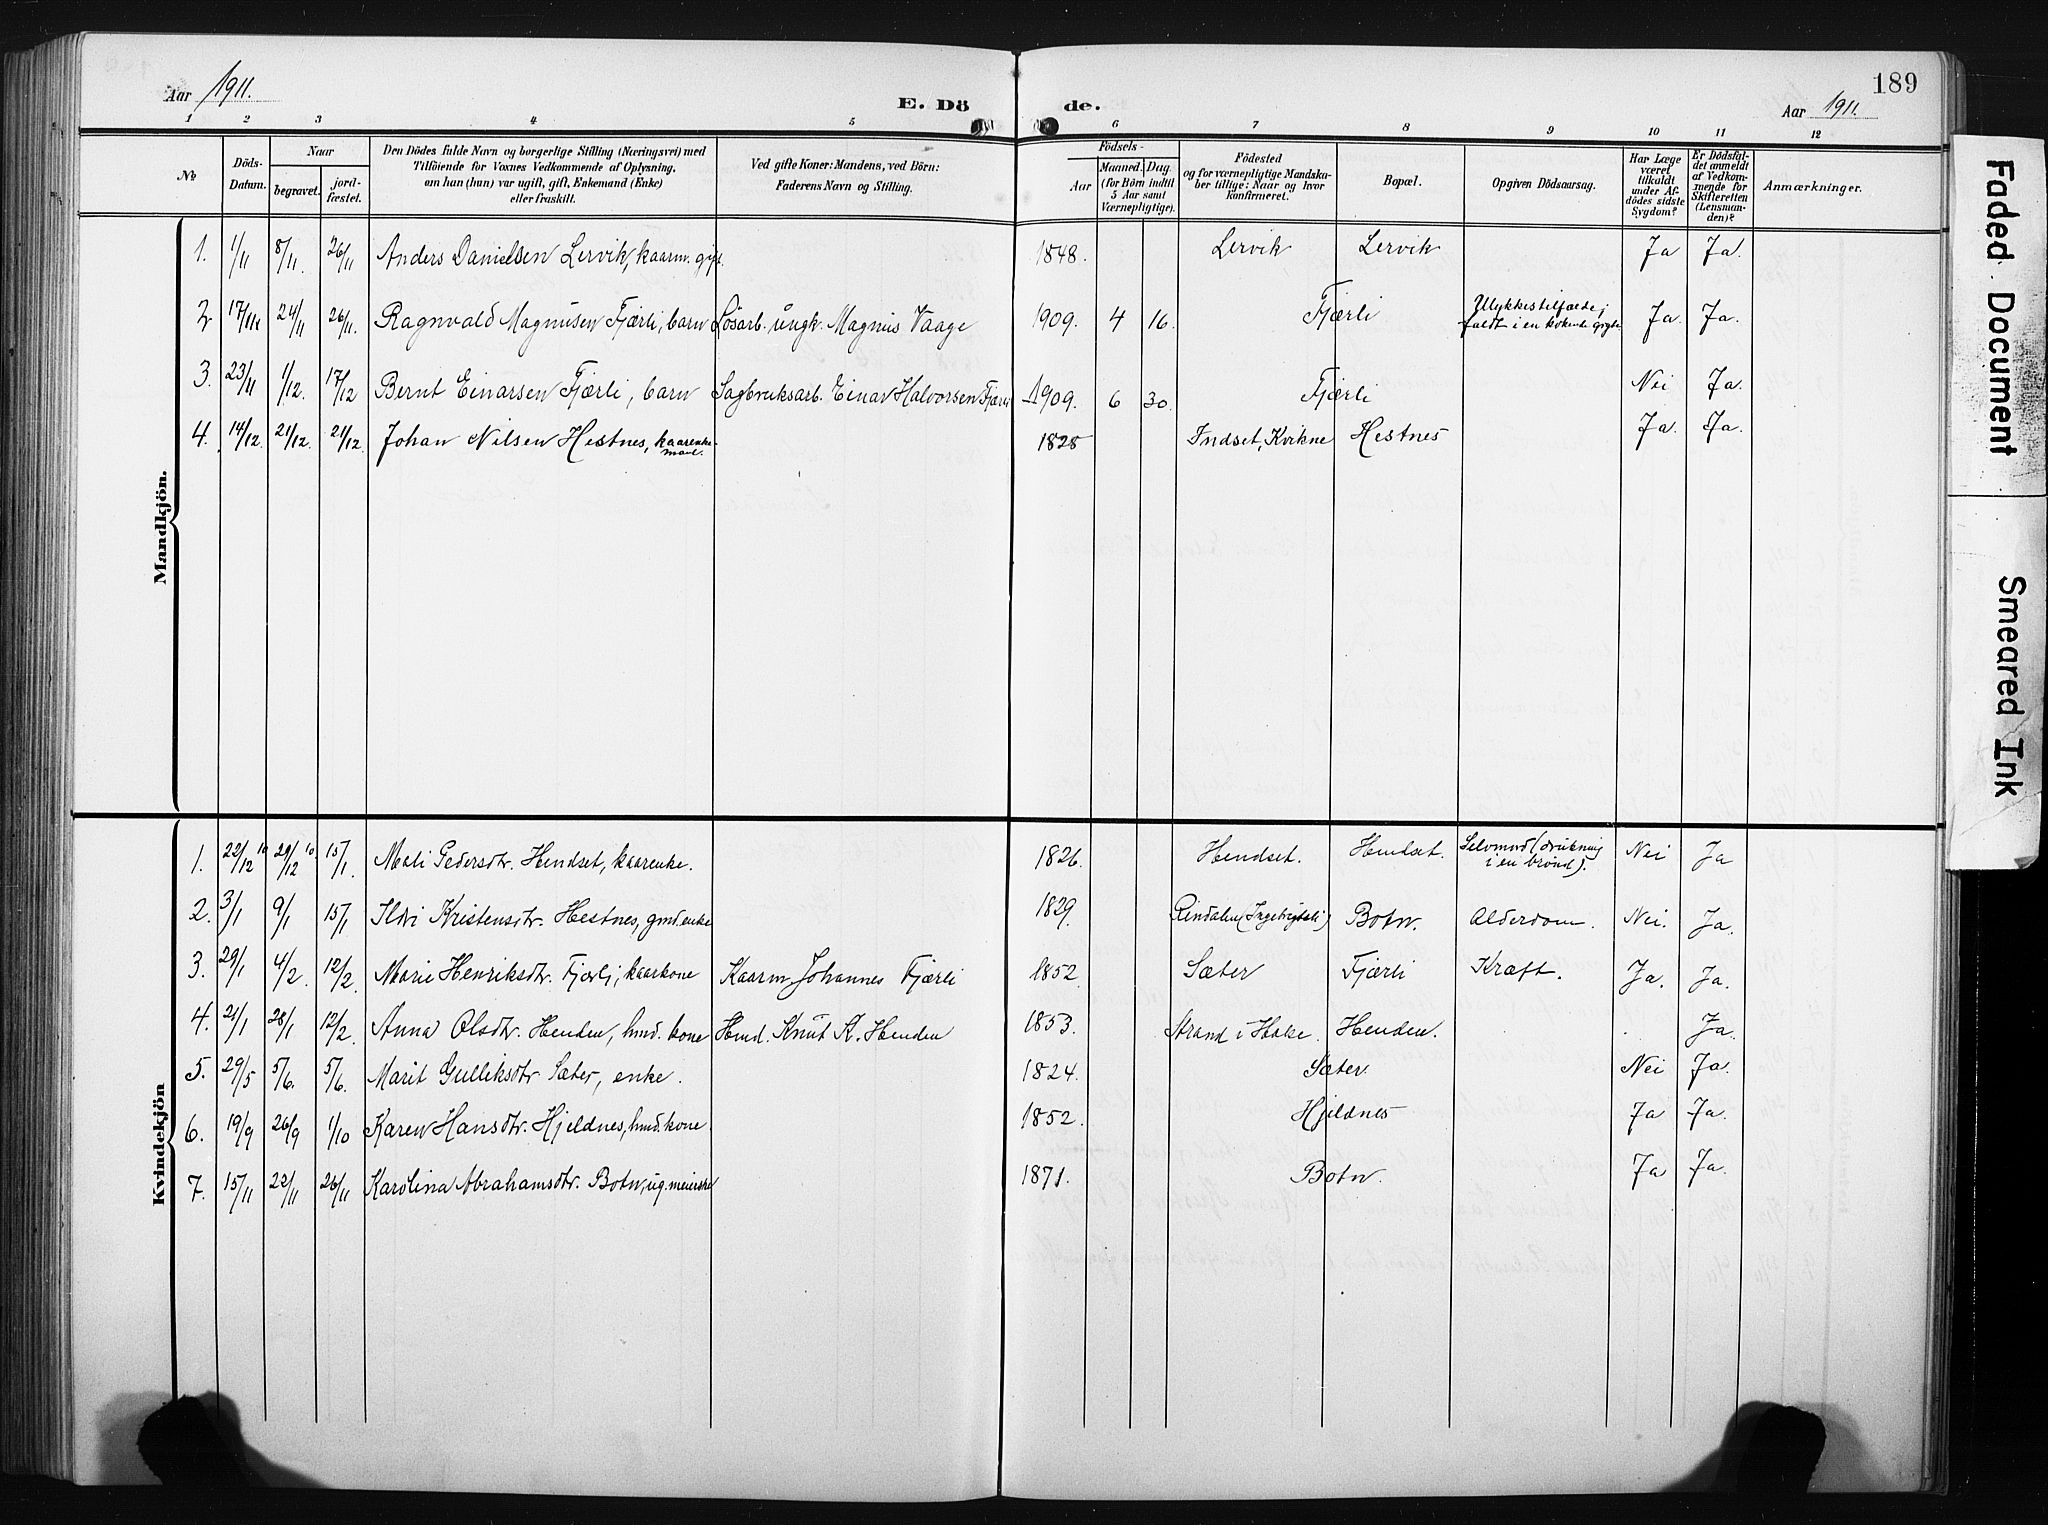 Aar 1911.
E. Dö
de.
189
Aar 1911.
1 2 3 4 5 6 7 8 9 10 11 12
№
Döds-
Datum.
Naar
begravet.
jord-
fæstet.
Den Dödes fulde Navn og borgerlige Stilling (Næringsvei) med
Tilföiende for Voxnes Vedkommende af Oplysning,
om han (hun) var ugift, gift, Enkemand (Enke)
eller fraskilt.
Ved gifte Koner: Mandens, ved Börn:
Faderens Navn og Stilling.
Födsels-
Aar
Maaned. Dag.
(for Börn indtil
5 Aar samt
Værnepligtige).
Födested
og for værnepligtige Mandska-
ber tillige: Naar og hvor
konfirmeret.
Bopæl.
Opgiven Dödsaarsag.
Har Læge
været
tilkaldt
under Af-
dödes sidste
Sygdom?
Er Dödsfal-
det anmeldt
af Vedkom-
mende for
Skifteretten
(Lensman-
den)?
Anmærkninger.
Mandkjön.
1. 1/11 8/11. 26/11 Anders Danielsen Lervik, kaarm. gift. 1848. Lervik Lervik Ja Ja.
2 17/11 24/11 26/11. Ragnvald Magnusen Fjærli, barn Løsarb. ungk. Magnus Vaage 1909. 4 16. Fjærli Ulykkestilfælde; Ja. Ja.
faldt i en kokende gryte
3. 23/11 1/12. 17/12 Bernt Einarsen Fjærli, barn Sagbruksarb. Einar Halvorsen Fjærli 1909. 6 30. Fjærli Nei Ja.
4. 14/12. 21/12. 21/12. Johan Nilsen Hestnes, kaarenke- 1828 Indset, Kvikne Hestnes Ja. Ja.
mand.
Kvindekjön
1. 22/12 10 29/12 10. 15/1. Mali Pedersdtr. Hendset, kaarenke. 1826. Hendset. Hendset. Selvmord (drukning Nei Ja
i en brønd).
2. 3/1 9/1 15/1 Ildri Kristensdtr. Hestnes, gmd.enke 1829. Rindalen (Ingebrigtsli) Botn. Alderdom. Nei. Ja.
3. 29/1 4/2. 12/2. Marie Henriksdtr. Fjærli, kaarkone Kaarm. Johannes Fjærli 1852. Sæter Fjærli Kræft. Ja. Ja.
4. 21/1 28/1 12/2. Anna Olsdtr. Henden, hmd. kone Hmd. Knut K. Henden 1853. Strand i Halse. Henden. Ja.
5. 29/5 5/6. 5/6. Marit Gulliksdtr. Sæter, enke. 1824. Sæter. Nei Ja.
6. 19/9 26/9 1/10 Karen Hansdtr. Hjeldnes, hmd. kone. 1852. Hjeldnes Ja Ja.
7. 15/11 22/11 26/11 Karolina Abrahamsdtr. Botn, ug. meierske 1871. Botn. Ja Ja.
Faded Document
Smeared Ink